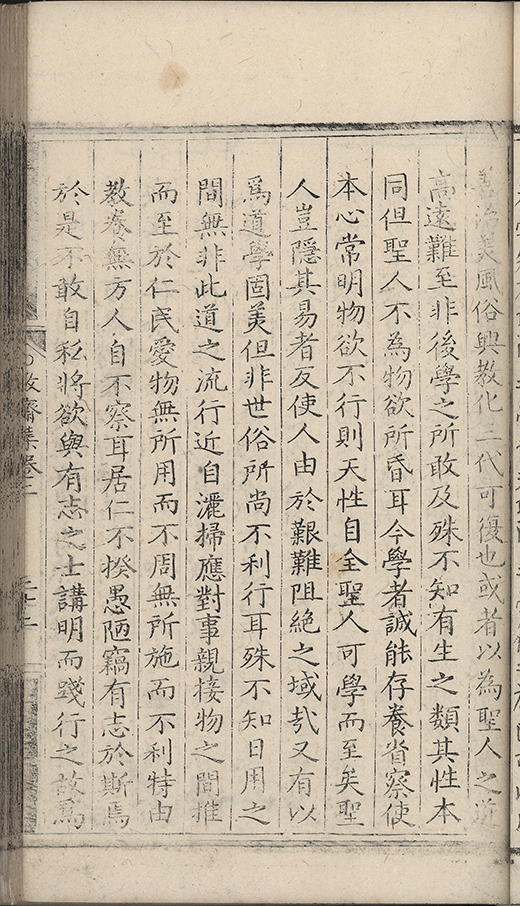 善治美風俗興教化三代可復也或者以為聖人之道
高遠難至非後學之所敢及殊不知有生之類其性本
同但聖人不為物欲所昏耳今學者誠能存養省察使
本心常明物欲不行則天性自全聖人可學而至矣聖
人豈隱其易者反使人由於艱難阻絶之域㢤又有以
爲道學固美但非世俗所尚不利行耳殊不知日用之
間無非此道之流行近自灑掃應對事親接物之間推
而至於仁民愛物無所用而不周無所施而不利特由
教養無方人自不察耳居仁不揆愚陋竊有志於斯焉
於是不敢自私將欲與有志之士講明而踐行之故爲
敬齋集卷二